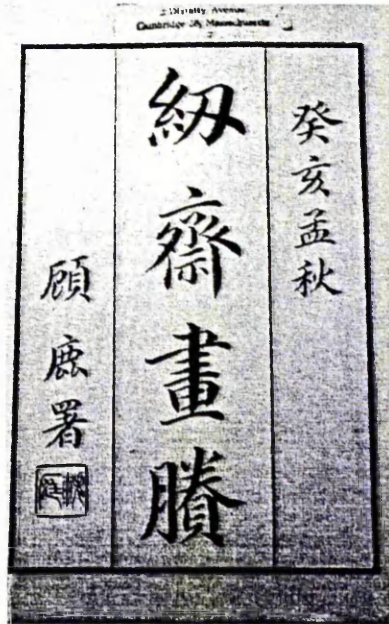 2 Divinity Avenue
Cambridge 38, Massachusetts
癸亥孟秋
紉齋畫賸
顧鹿署